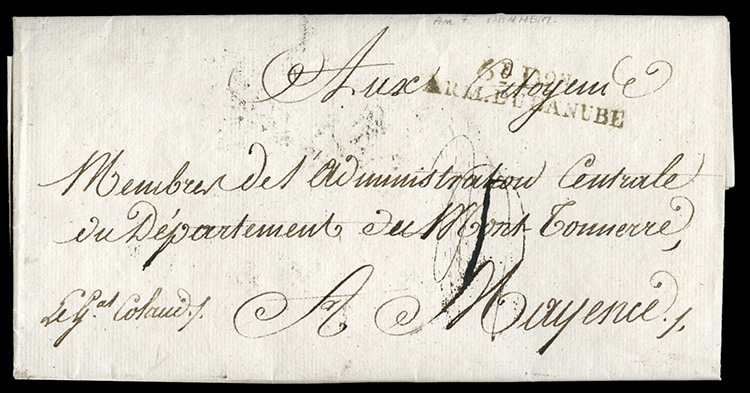 Am 7 DENHEIM.
Aux Citoyens
ARM. DU DANUBE
Membres de l'Administration Centrale
du Département du Mont Tonnerre,
Le Gal. Colaud./.
A Mayence./.